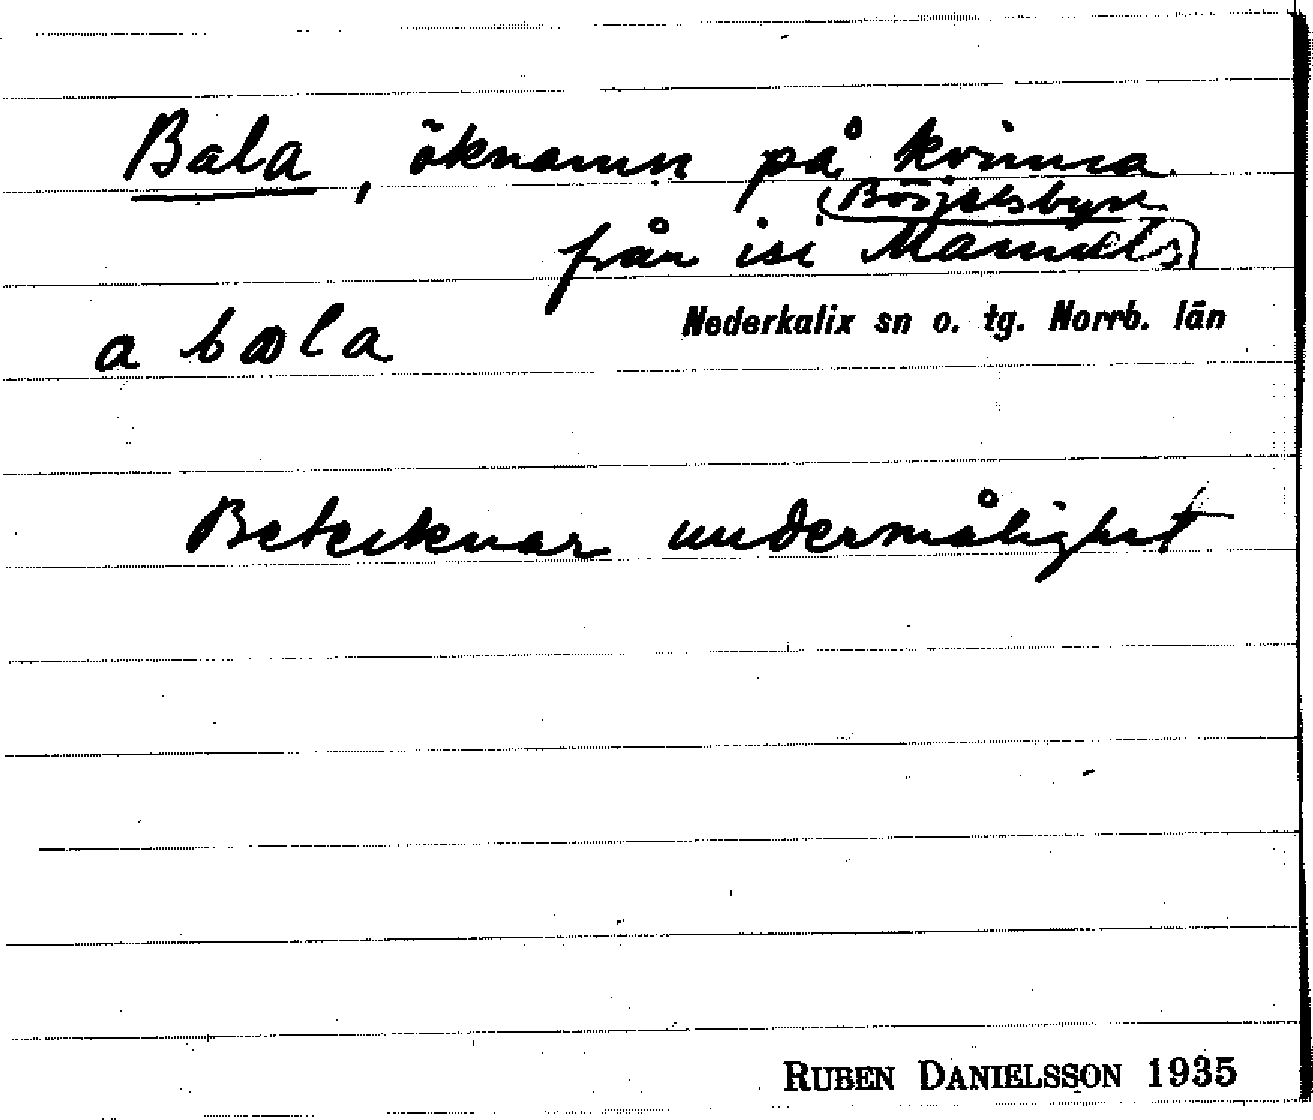 Bala, öknamn på kvinna
(Börjelsbyn
från isi Manuels)
Nederkalix sn o. tg. Norrb. län
a bala
Betecknar undermålighet
RUBEN DANIELSSON 1935